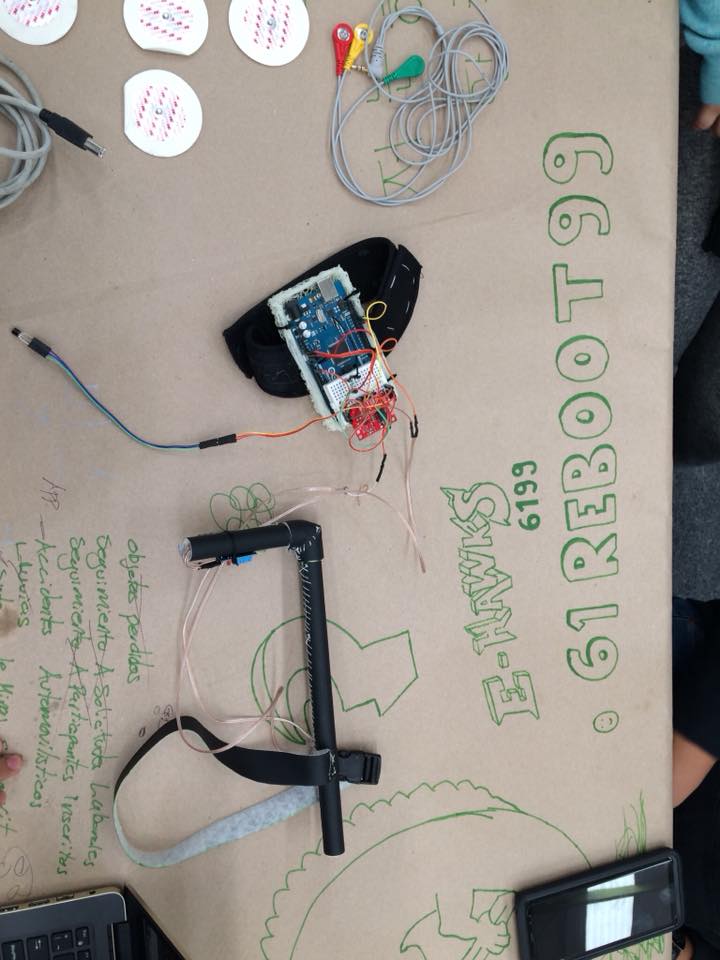 E-HAWKS
6199
61 REBOOT99
objetos perdidos
Seguimiento A Solicitude Laborales
Seguimiento A Participantes Inscritos
APP - Accidentes Automovilisticos
Lluvias